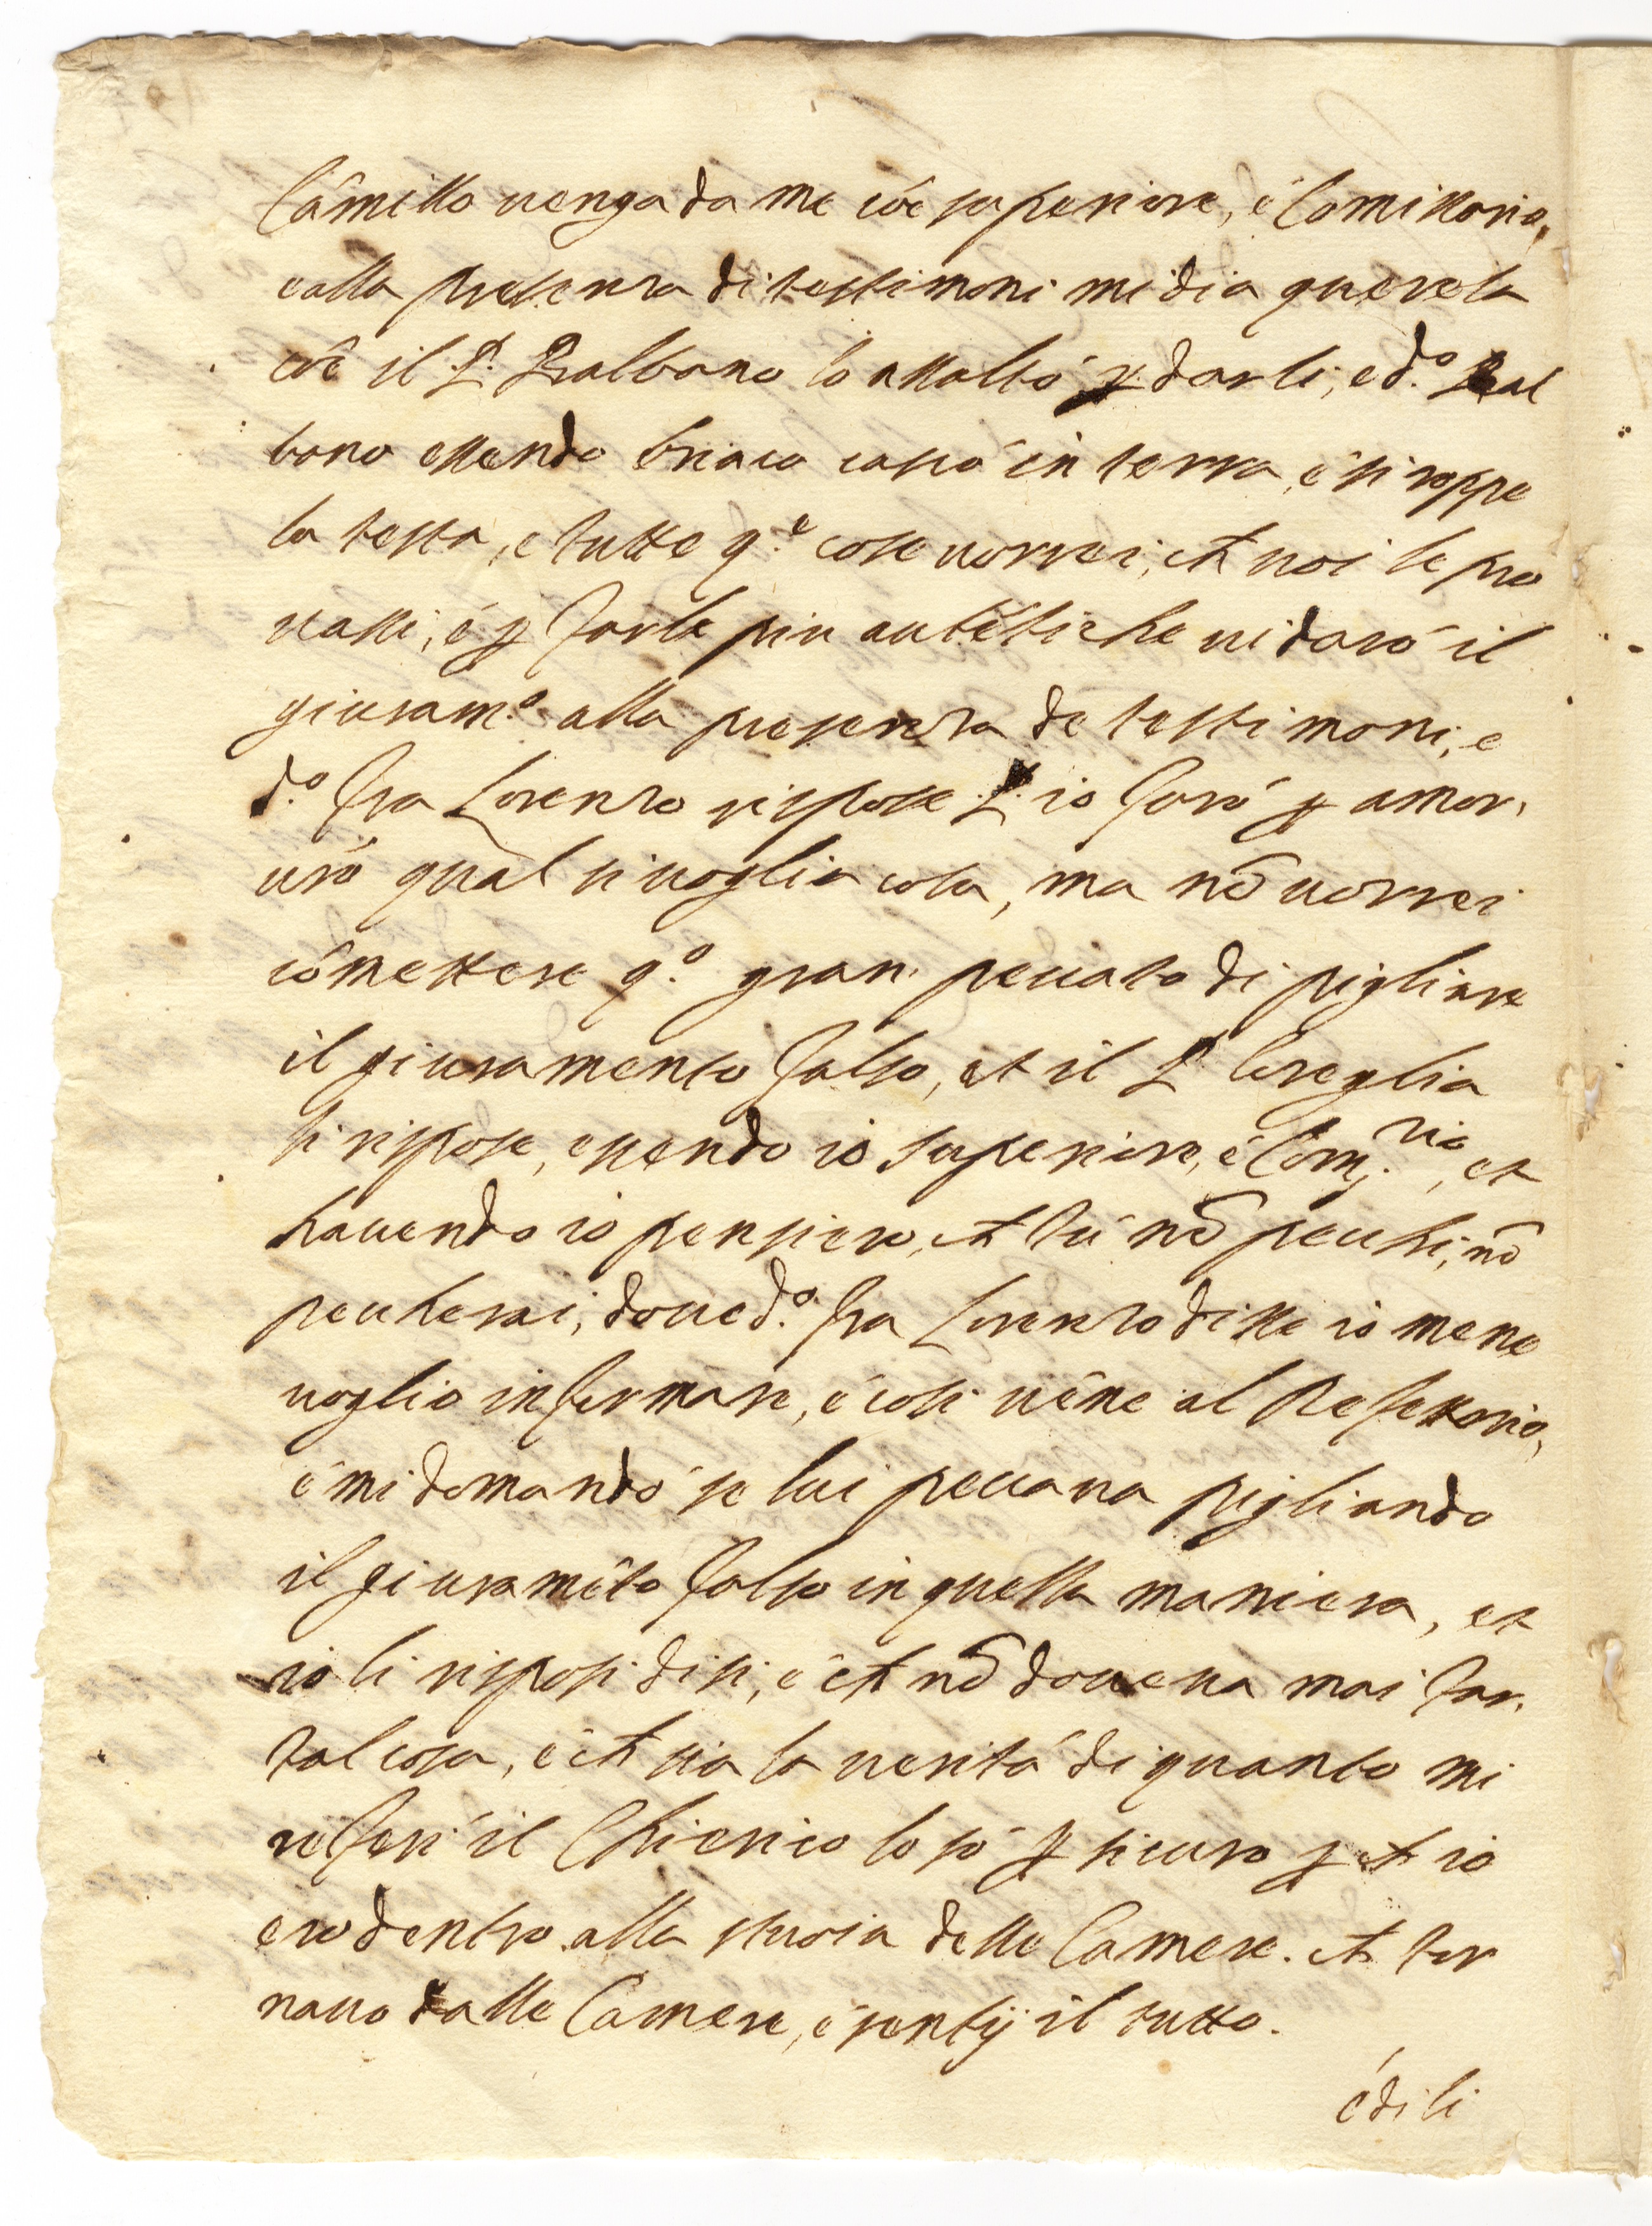 Camillo uenga da me cõe superiore, é Comissario,
e alla presenza di testimoni mi dia querela
cõe il P. Balbano lo assaltò ꝑ darli, e d.º Bal
bano essendo briaco cascò in terra, é si roppe
la testa, e tutte q.e cose uorrei, ch uoi le pro
uassi, é ꝑ farle piu autẽtiche ui daró il
giuram.º alla presenza de testimoni, e
d.º fra Lorenzo rispose P. io faró ꝑ amor,
uro qual si uoglia cosa, ma nõ uorrei
cõmettere q.º gran peccato di pigliare
il giuramento falso, et il P. Cereglia
li rispose, essendo io superiore, é Com.rio, et
hauendo io pensiero, ch tú nõ pecchi, nõ
peccherai, doue d.º fra Lorenzo disse io mene
uoglio informare, é cosi uẽne al Refettorio,
é mi domandó se lui peccaua pigliando
il giuramẽto falso in quella maniera, et
io li risposi di si, é ch nõ doueua mai far,
tal cosa, é ch sia la uerità di quanto mi
referì il Chierico lo só ꝑ sicuro ꝑ ch io
ero dentro alla stuoia delle Camere. ch tor
nauo dalle Camere, é sentij il tutto.
é di li